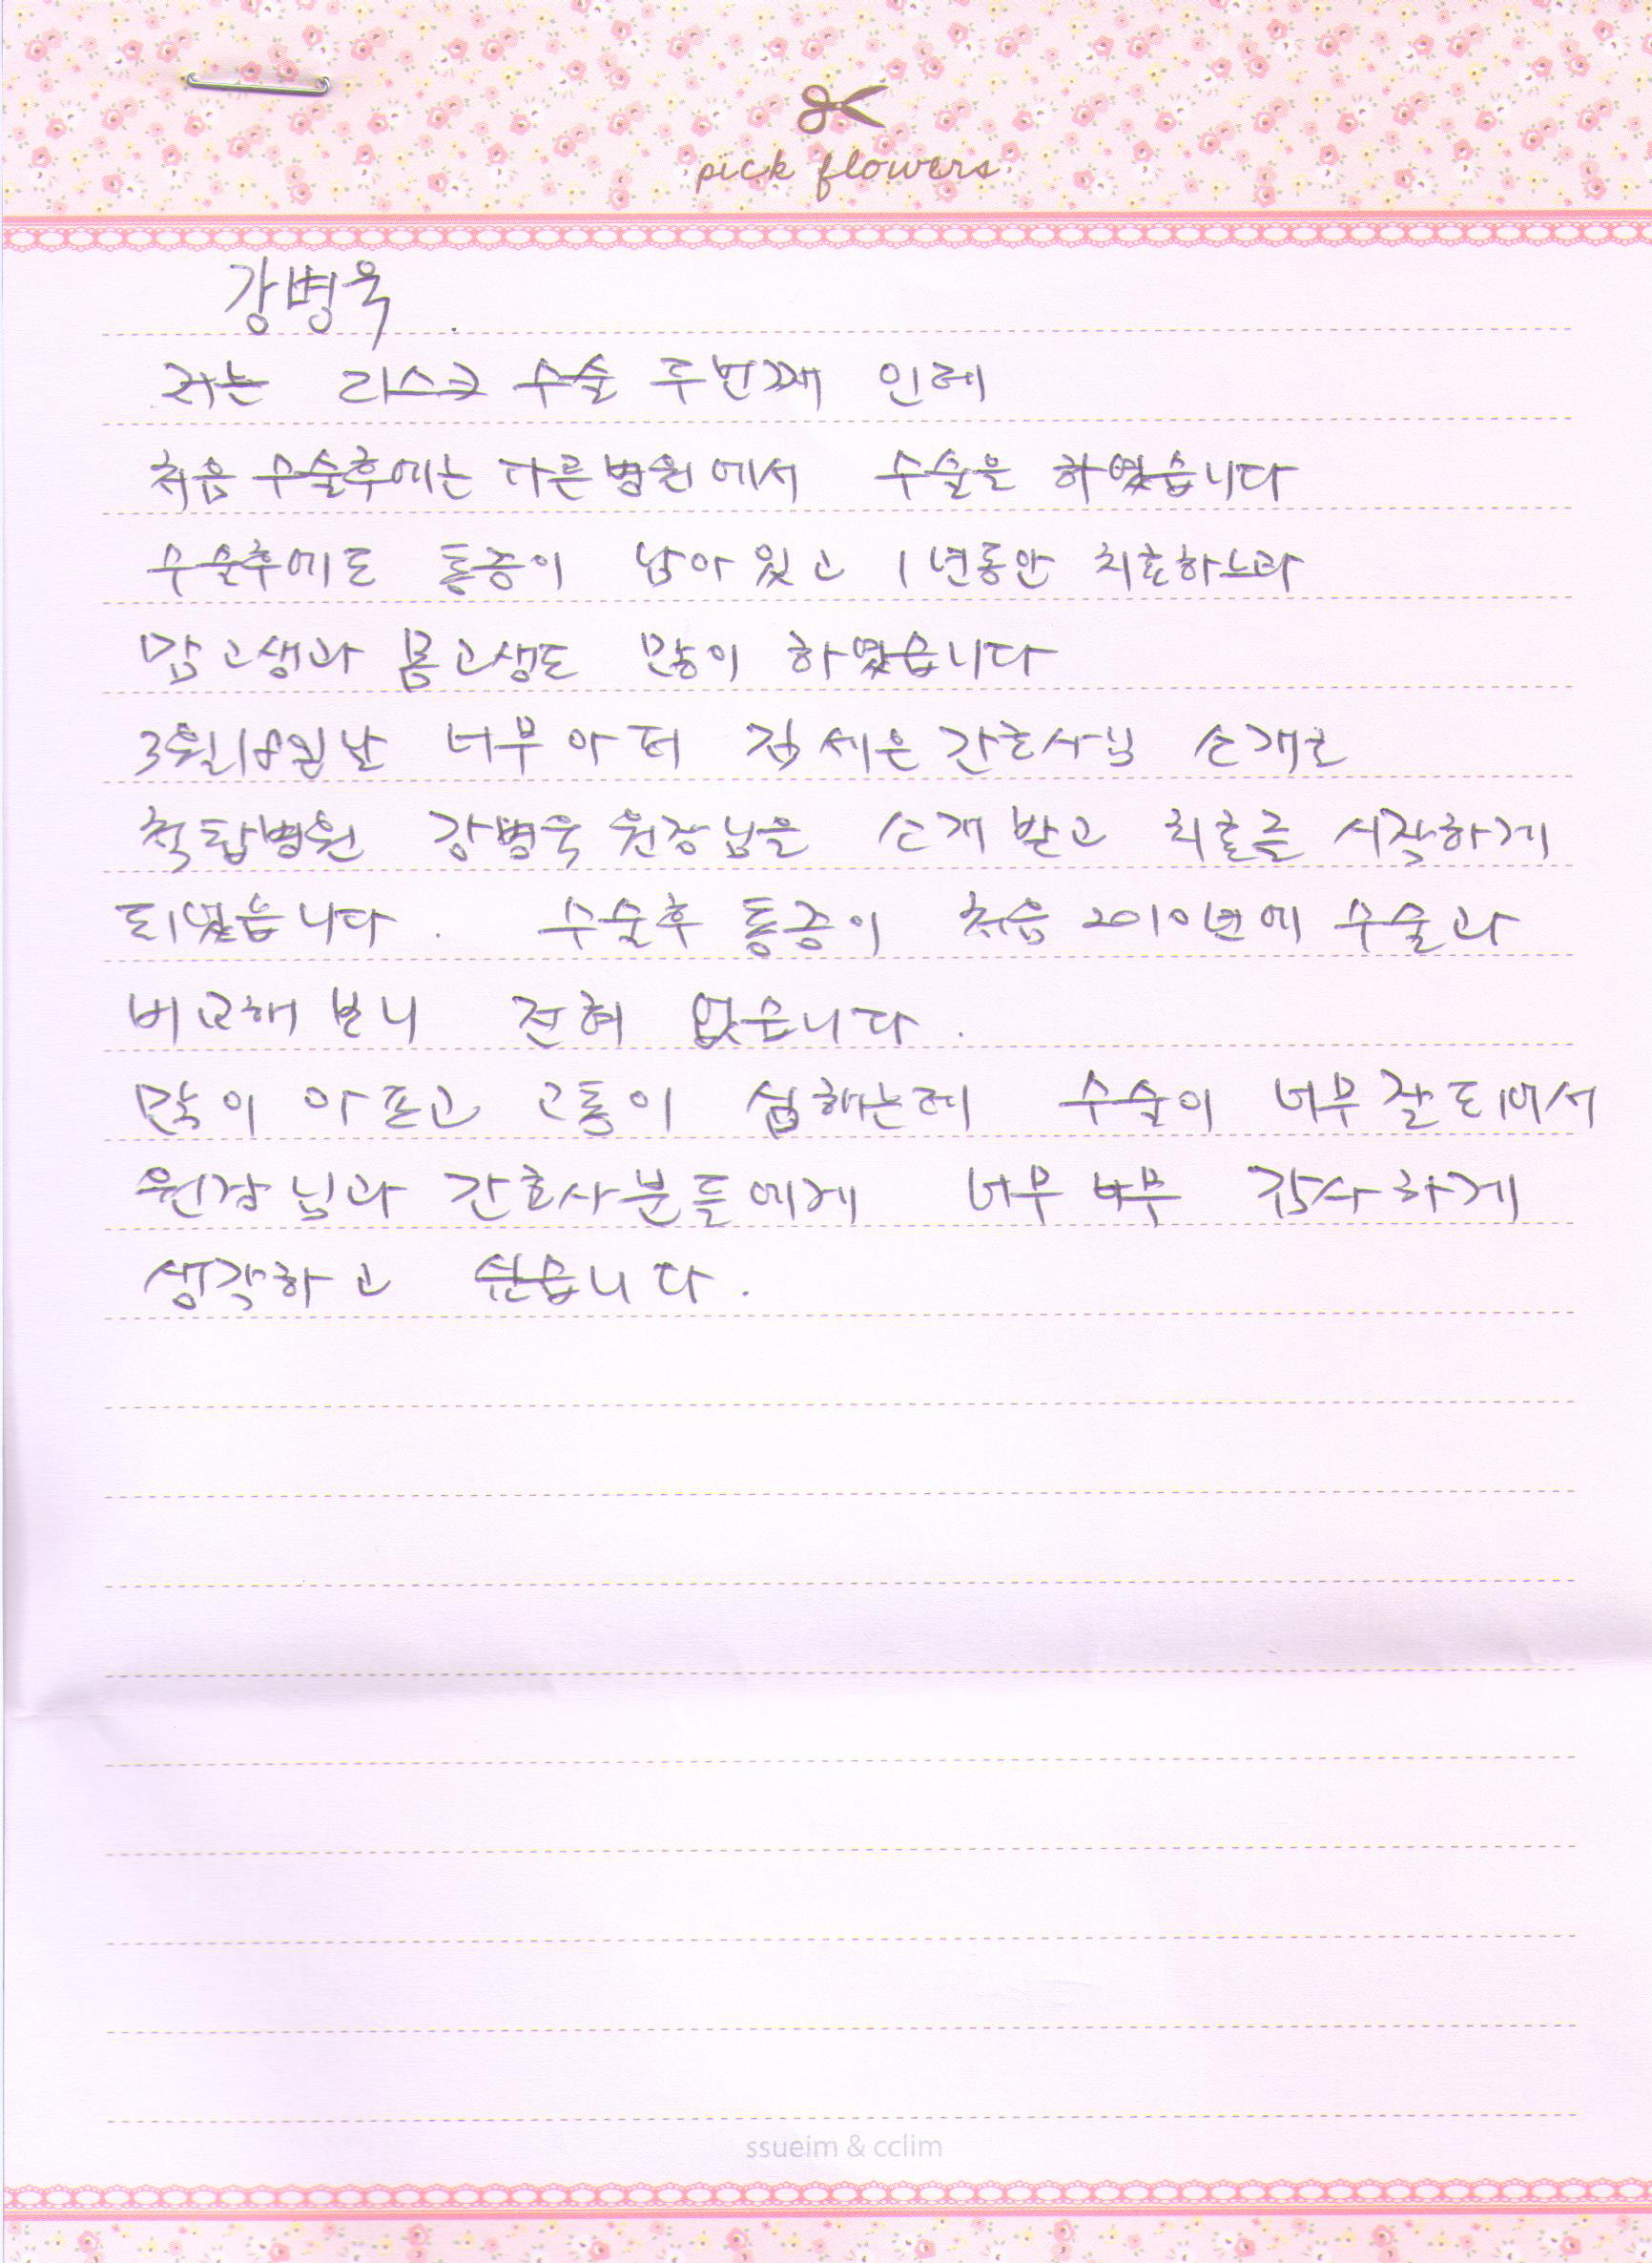 pick flowers
강병욱.
저는 리스크 수술 두번째 인데
처음 수술후에는 다른병원에서 수술을 하였습니다
수술후에도 통증이 남아있고 1년동안 치료하느라
맘고생과 몸고생도 많이 하였습니다
3월18일날 너무아퍼 김세은간호사님 소개로
척탑병원 강병욱원장님을 소개받고 치료를 시작하게
되었습니다. 수술후 통증이 처음 2010년에 수술과
비교해보니 전혀 없습니다.
많이 아프고 고통이 심했는데 수술이 너무잘되어서
원장님과 간호사분들에게 너무 너무 감사하게
생각하고 싶습니다.
ssueim & cclim